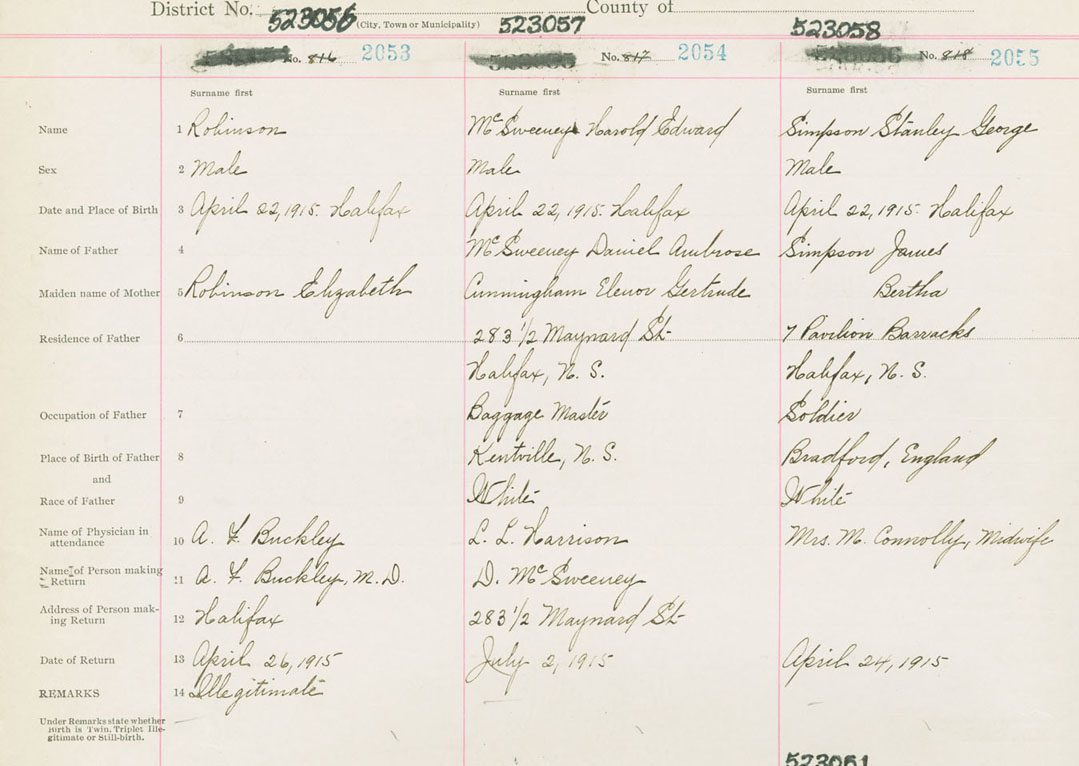 District No. County of
523056 (City, Town or Municipality) 523057 523058
No. 816 2053 No. 817 2054 No. 818 2055
Surname first Surname first Surname first
Name 1 Robinson McSweeney Harold Edward Simpson Stanley George
Sex 2 Male Male Male
Date and Place of Birth 3 April 22, 1915. Halifax April 22, 1915. Halifax April 22, 1915. Halifax
Name of Father 4 McSweeney Daniel Ambrose Simpson James
Maiden name of Mother 5 Robinson Elizabeth Cunningham Elenor Gertrude Bertha
Residence of Father 6 283 1/2 Maynard St 7 Pavilion Barracks
Halifax, N. S. Halifax, N. S.
Occupation of Father 7 Baggage Master Soldier
Place of Birth of Father 8 Kentville, N. S. Bradford, England
and
Race of Father 9 White White
Name of Physician in
attendance 10 A. F. Buckley L. L. Harrison Mrs. M. Connolly, Midwife
Name of Person making
Return 11 A. F. Buckley, M. D. D. McSweeney
Address of Person mak-
ing Return 12 Halifax 283 1/2 Maynard St
Date of Return 13 April 26, 1915 July 2, 1915 April 24, 1915
REMARKS 14 Illegitimate
Under Remarks state whether
Birth is Twin. Triplet Ille-
gitimate or Still-birth.
523061